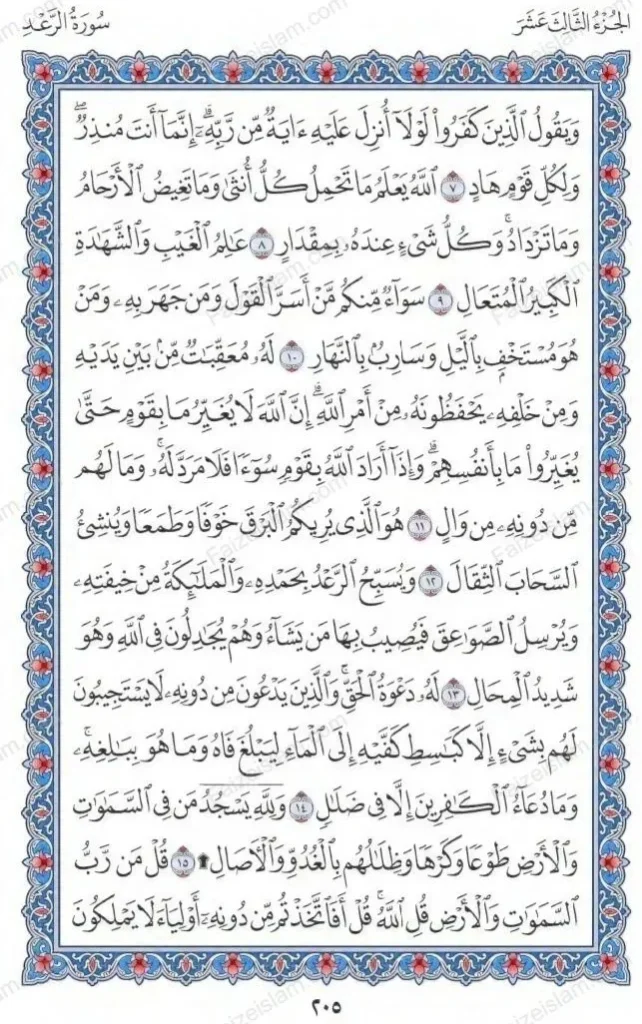 الجُزْءُ الثَّالِثَ عَشَرَ
سُورَةُ الرَّعْدِ
وَيَقُولُ ٱلَّذِينَ كَفَرُوا۟ لَوْلَآ أُنزِلَ عَلَيْهِ ءَايَةٌ مِّن رَّبِّهِۦٓ ۗ إِنَّمَآ أَنتَ مُنذِرٌ ۖ
وَلِكُلِّ قَوْمٍ هَادٍ ٧ ٱللَّهُ يَعْلَمُ مَا تَحْمِلُ كُلُّ أُنثَىٰ وَمَا تَغِيضُ ٱلْأَرْحَامُ
وَمَا تَزْدَادُ ۖ وَكُلُّ شَىْءٍ عِندَهُۥ بِمِقْدَارٍ ٨ عَٰلِمُ ٱلْغَيْبِ وَٱلشَّهَٰدَةِ
ٱلْكَبِيرُ ٱلْمُتَعَالِ ٩ سَوَآءٌ مِّنكُم مَّنْ أَسَرَّ ٱلْقَوْلَ وَمَن جَهَرَ بِهِۦ وَمَنْ
هُوَ مُسْتَخْفٍۭ بِٱلَّيْلِ وَسَارِبٌۢ بِٱلنَّهَارِ ١٠ لَهُۥ مُعَقِّبَٰتٌ مِّنۢ بَيْنِ يَدَيْهِ
وَمِنْ خَلْفِهِۦ يَحْفَظُونَهُۥ مِنْ أَمْرِ ٱللَّهِ ۗ إِنَّ ٱللَّهَ لَا يُغَيِّرُ مَا بِقَوْمٍ حَتَّىٰ
يُغَيِّرُوا۟ مَا بِأَنفُسِهِمْ ۗ وَإِذَآ أَرَادَ ٱللَّهُ بِقَوْمٍ سُوٓءًا فَلَا مَرَدَّ لَهُۥ ۚ وَمَا لَهُم
مِّن دُونِهِۦ مِن وَالٍ ١١ هُوَ ٱلَّذِى يُرِيكُمُ ٱلْبَرْقَ خَوْفًا وَطَمَعًا وَيُنشِئُ
ٱلسَّحَابَ ٱلثِّقَالَ ١٢ وَيُسَبِّحُ ٱلرَّعْدُ بِحَمْدِهِۦ وَٱلْمَلَٰٓئِكَةُ مِنْ خِيفَتِهِۦ
وَيُرْسِلُ ٱلصَّوَٰعِقَ فَيُصِيبُ بِهَا مَن يَشَآءُ وَهُمْ يُجَٰدِلُونَ فِى ٱللَّهِ وَهُوَ
شَدِيدُ ٱلْمِحَالِ ١٣ لَهُۥ دَعْوَةُ ٱلْحَقِّ ۖ وَٱلَّذِينَ يَدْعُونَ مِن دُونِهِۦ لَا يَسْتَجِيبُونَ
لَهُم بِشَىْءٍ إِلَّا كَبَٰسِطِ كَفَّيْهِ إِلَى ٱلْمَآءِ لِيَبْلُغَ فَاهُ وَمَا هُوَ بِبَٰلِغِهِۦ ۚ
وَمَا دُعَآءُ ٱلْكَٰفِرِينَ إِلَّا فِى ضَلَٰلٍ ١٤ وَلِلَّهِ يَسْجُدُ مَن فِى ٱلسَّمَٰوَٰتِ
وَٱلْأَرْضِ طَوْعًا وَكَرْهًا وَظِلَٰلُهُم بِٱلْغُدُوِّ وَٱلْءَاصَالِ ۩ ١٥ قُلْ مَن رَّبُّ
ٱلسَّمَٰوَٰتِ وَٱلْأَرْضِ قُلِ ٱللَّهُ ۚ قُلْ أَفَٱتَّخَذْتُم مِّن دُونِهِۦٓ أَوْلِيَآءَ لَا يَمْلِكُونَ
٢٠٥
Faizeislam.com